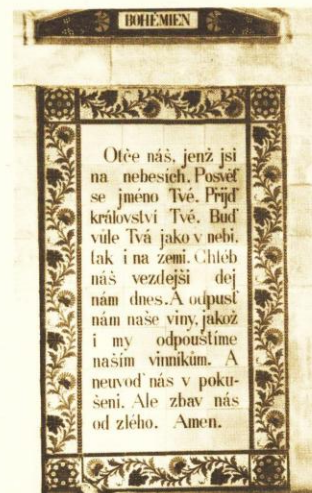 BOHÉMIEN
Otče náš, jenž jsi
na nebesích. Posvěť
se jméno Tvé. Přijď
království Tvé. Buď
vůle Tvá jako v nebi,
tak i na zemi. Chléb
náš vezdejší dej
nám dnes. A odpusť
nám naše viny, jakož
i my odpouštíme
naším vinníkům. A
neuvoď nás v poku-
šení. Ale zbav nás
od zlého. Amen.